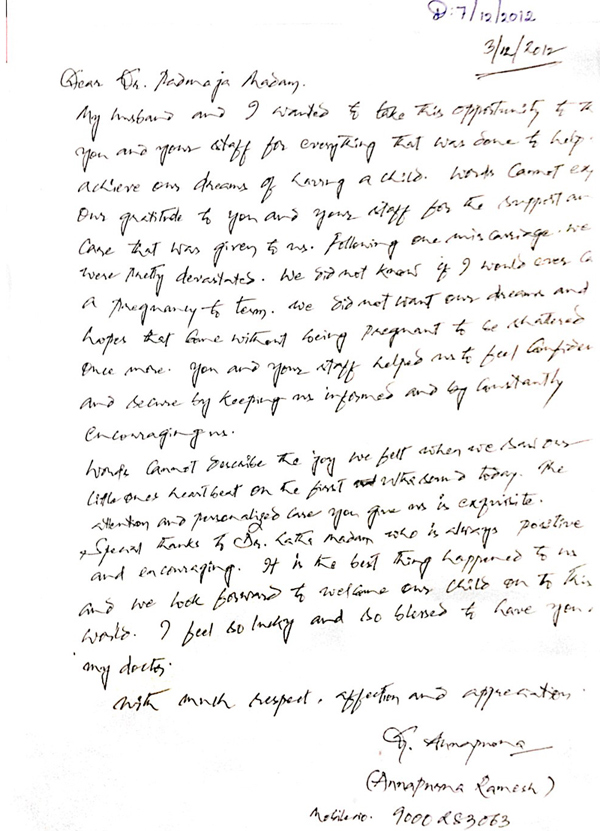 D: 7/12/2012
3/12/2012
Dear Dr. Padmaja Madam.
My husband and I wanted to take this opportunity to th
you and your staff for everything that was done to help.
achieve our dreams of having a child. Words Cannot ex
Our gratitude to you and your staff for the support an
care that was given to us. Following one miscarriage. we
were pretty devastated. We did not know if I would ever ca
a pregnancy to term. We did not want our dreams and
hopes that come without being pregnant to be shattered
once more. you and your staff helped us to feel Confiden
and secure by keeping us informed and by Constantly
encouraging us.
Words Cannot describe the joy we felt when we saw our
little ones heartbeat on the first ultrasound today. The
attention and personalized care you give us is exquisite.
Special thanks to Dr. Latha Madam who is always positive
and encouraging. It is the best thing happened to us
and we look forward to welcome our child on to this
world. I feel so lucky and so blessed to have you.
my doctor.
With much respect, affection and appreciation.
Annapurna
(Annapurna Ramesh)
Mobile no. 9000283063